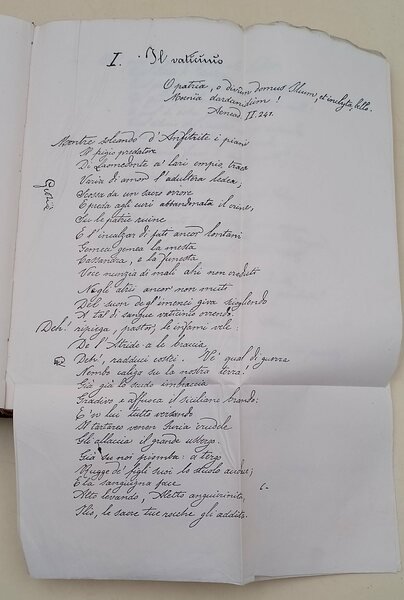 I. Il vaticinio
O patria, o divum domus Ilium, et inclyta bello
Moenia dardanidum!
Aeneid. II. 241.
Mentre solcando d'Anfitrite i piani
Il frigio predatore
Di Laomedonte a' lari empio traea
Varia di amor l'adultera ledea;
Scossa da un sacro orrore
E preda agli euri abbandonata il crine,
Su le patrie ruine
E l'incalzar di fati ancor lontani
Gemea gemea la mesta
Cassandra, e la funesta
Voce nunzia di mali ahi non creduti
Negli atrii ancor non muti
Del suon degl'imenei giva sciogliendo
A tal di sangue vaticinio orrendo:
Deh! ripiega, pastor, le infami vele:
De l'Atride a le braccia
Deh!, radduci costei. Ve' qual di guerra
Nembo caliga su la nostra terra!
Già già lo scudo imbraccia
Gradivo e affusca il siciliano brando:
E su lui tutto versando
Il tartareo venen Furia crudele
Gli allaccia il grande usbergo.
Già su noi piomba: a tergo
Rugge de' figli suoi lo stuolo audace;
E la sanguigna face
Alto levando, Aletto anguicrinita,
Ilio, le sacre tue rocche gli addita.